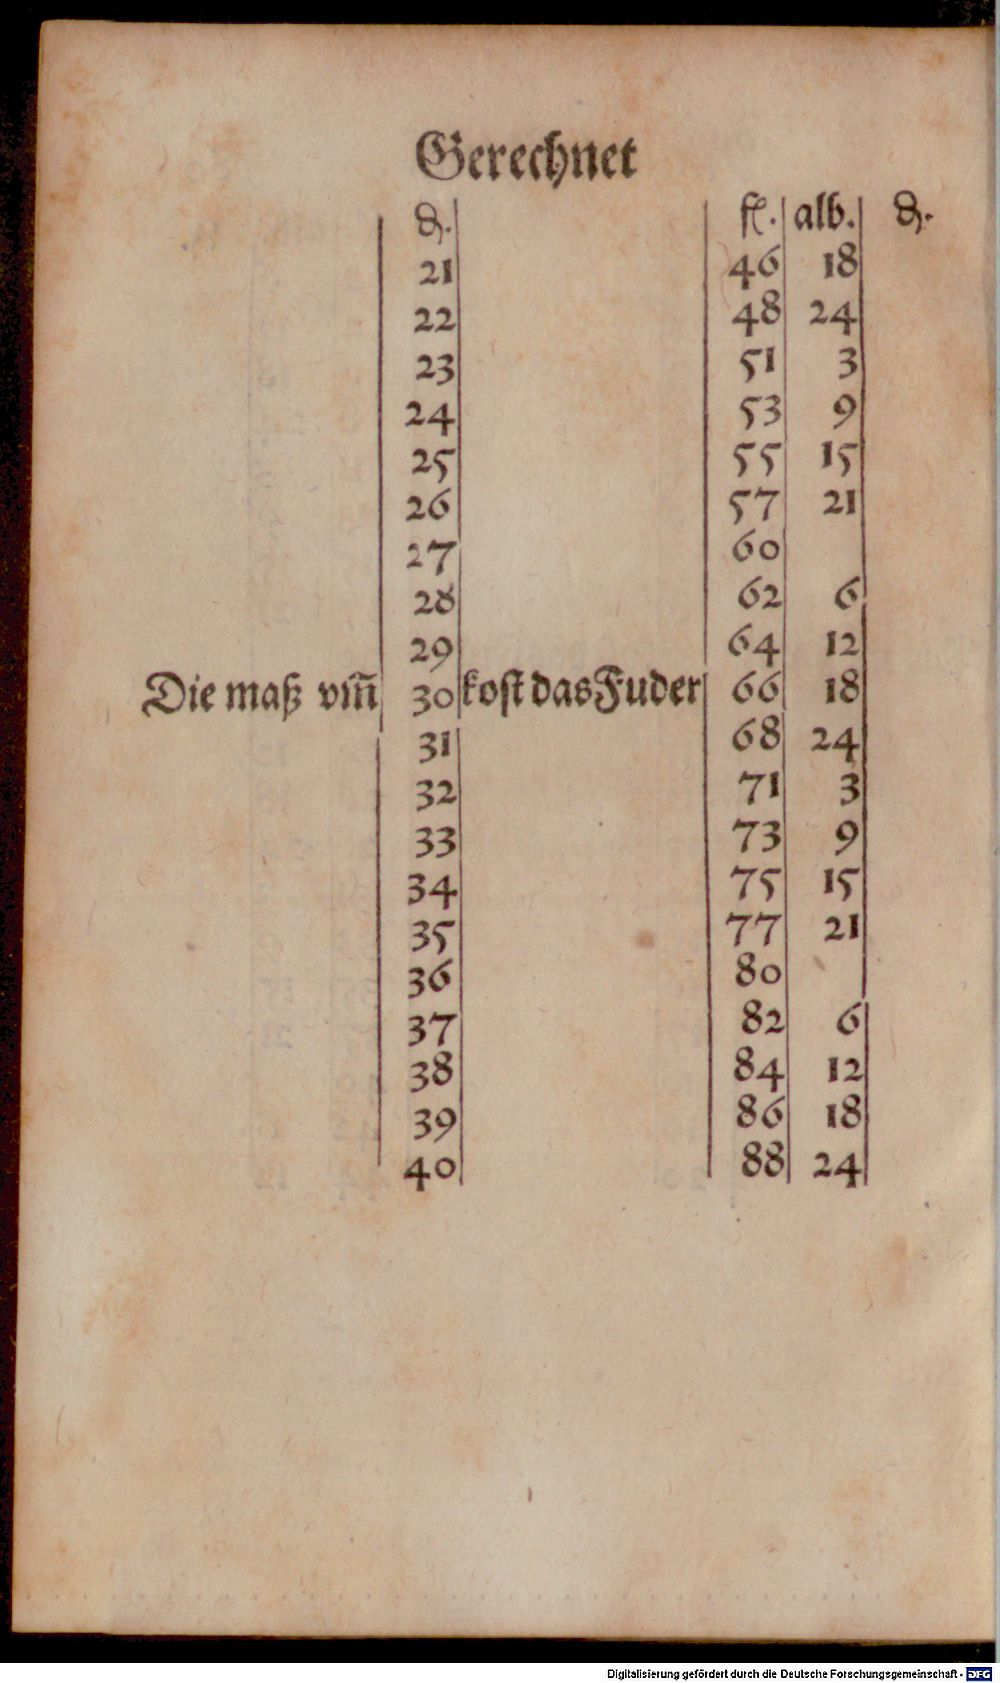 Gerechnet
₰. fl. alb. ₰.
21 46 18
22 48 24
23 51 3
24 53 9
25 55 15
26 57 21
27 60
28 62 6
29 64 12
Die maß vm̄ 30 kost das Fuder 66 18
31 68 24
32 71 3
33 73 9
34 75 15
35 77 21
36 80
37 82 6
38 84 12
39 86 18
40 88 24
Digitalisierung gefördert durch die Deutsche Forschungsgemeinschaft - DFG